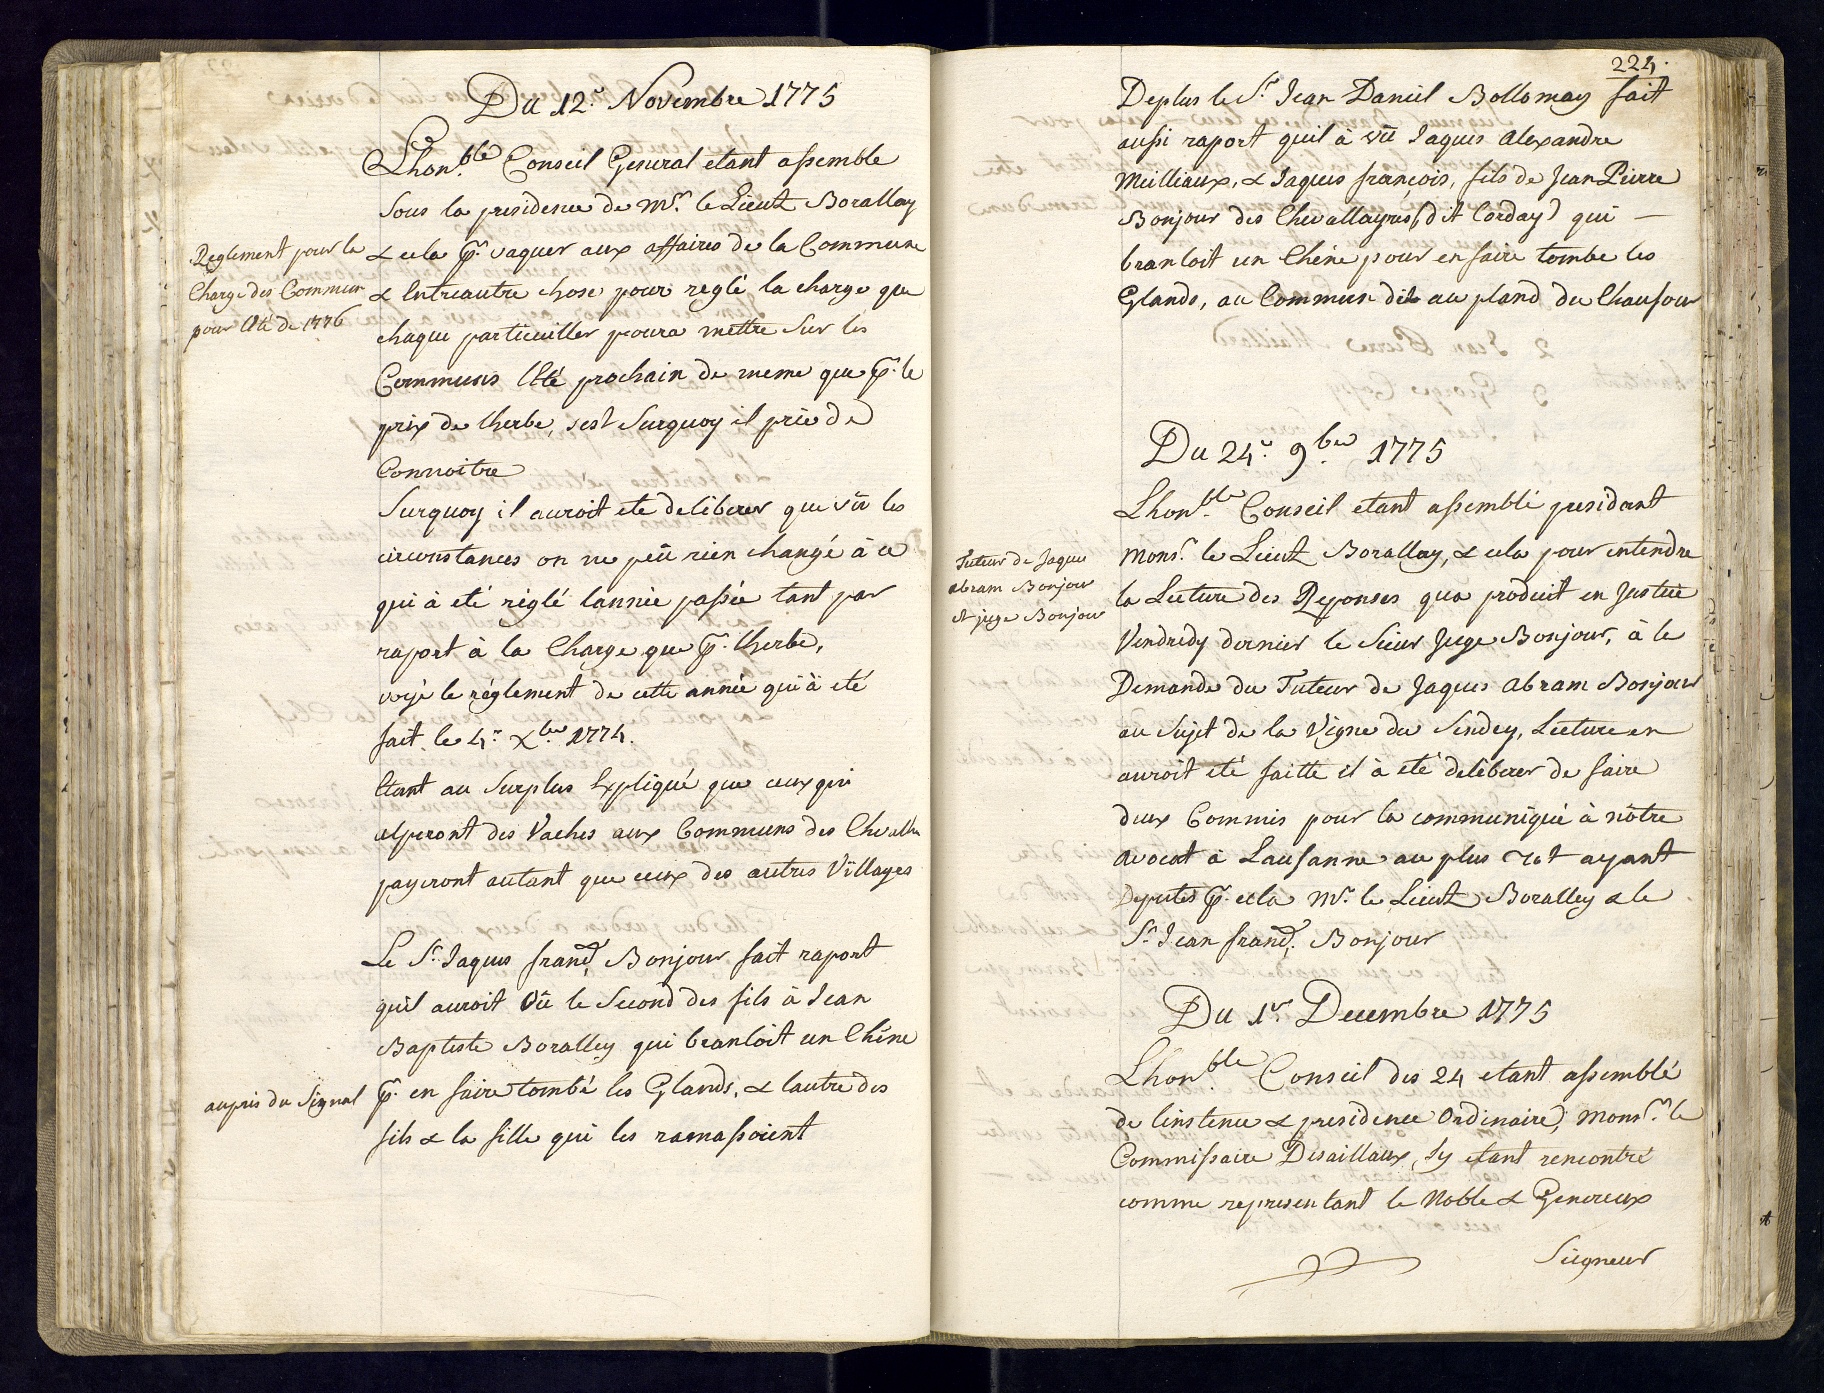 Du 12.e Novembre 1775
Lhon.ble Conseil General etant assemble
sous la presidence de Mr. le Lieut Borallay
Reglement pour la
Charge des Commun
pour lété de 1776
& cela pr. vaquer aux affaires de la Commune
& Entreautre chose pour reglé la charge que
chaque particuiller poura mettre sur les
Communs lété prochain de meme que pr. le
prix de lherbe, sest surquoy il prie de
Connoitre
Surquoy il auroit ete deliberer que vû les
circonstances on ne peû rien changé à ce
qui à eté réglé lannée passée tant par
raport à la Charge que pr. lherbe,
voyé le réglement de cette année qui à eté
fait le 4.e Xbre 1774.
Etant au Surplus Expliqué que ceux qui
alperont des Vaches aux Communs des Chevalla
payeront autant que ceux des autres Villages
Le Sr. Jaques franç. Bonjour fait raport
quil auroit Vû le Second des fils à Jean
Baptiste Boralley qui branloit un Chêne
aupres du Signal
pr. en faire tombé les Glands, & lautre des
fils & la fille qui les ramassoient
224.
Deplus le Sr. Jean Daniel Bollomay fait
aussi raport quil à vû Jaques Alexandre
Meilliaux, & Jaques françois, fils de Jean Pierre
Bonjour des Chevallayres (dit Corday) qui —
branloit un Chêne pour en faire tombe les
Glands, au Commun dit au pland du Chaufour
Du 24.e 9.bre 1775
Lhon.ble Conseil etant assemblé presidant
Tuteur de Jaque
Abram Bonjour
et juge Bonjour
Mons.r le Lieut Borallay, & cela pour entendre
la Lecture des Reponses qua produit en Justice
Vendredy dernier le Sieur Juge Bonjour, à le
Demande du Tuteur de Jaques Abram Bonjour
au Sujet de la Vigne du Sendey, Lecture en
auroit été faitte il à eté deliberer de faire
deux Commis pour la communiqué à nôtre
avocat à Lausanne au plus Tot ayant
Deputés pr. cela Mr. le Lieut Boralley & le
Sr. Jean franç. Bonjour
Du 1.er Decembre 1775
Lhon.ble Conseil des 24 etant assemblé
de linstence & presidence Ordinaire, Mons.r le
Commissaire Desaillaux, sy etant rencontré
comme representant le Noble & Genereux
Seigneur